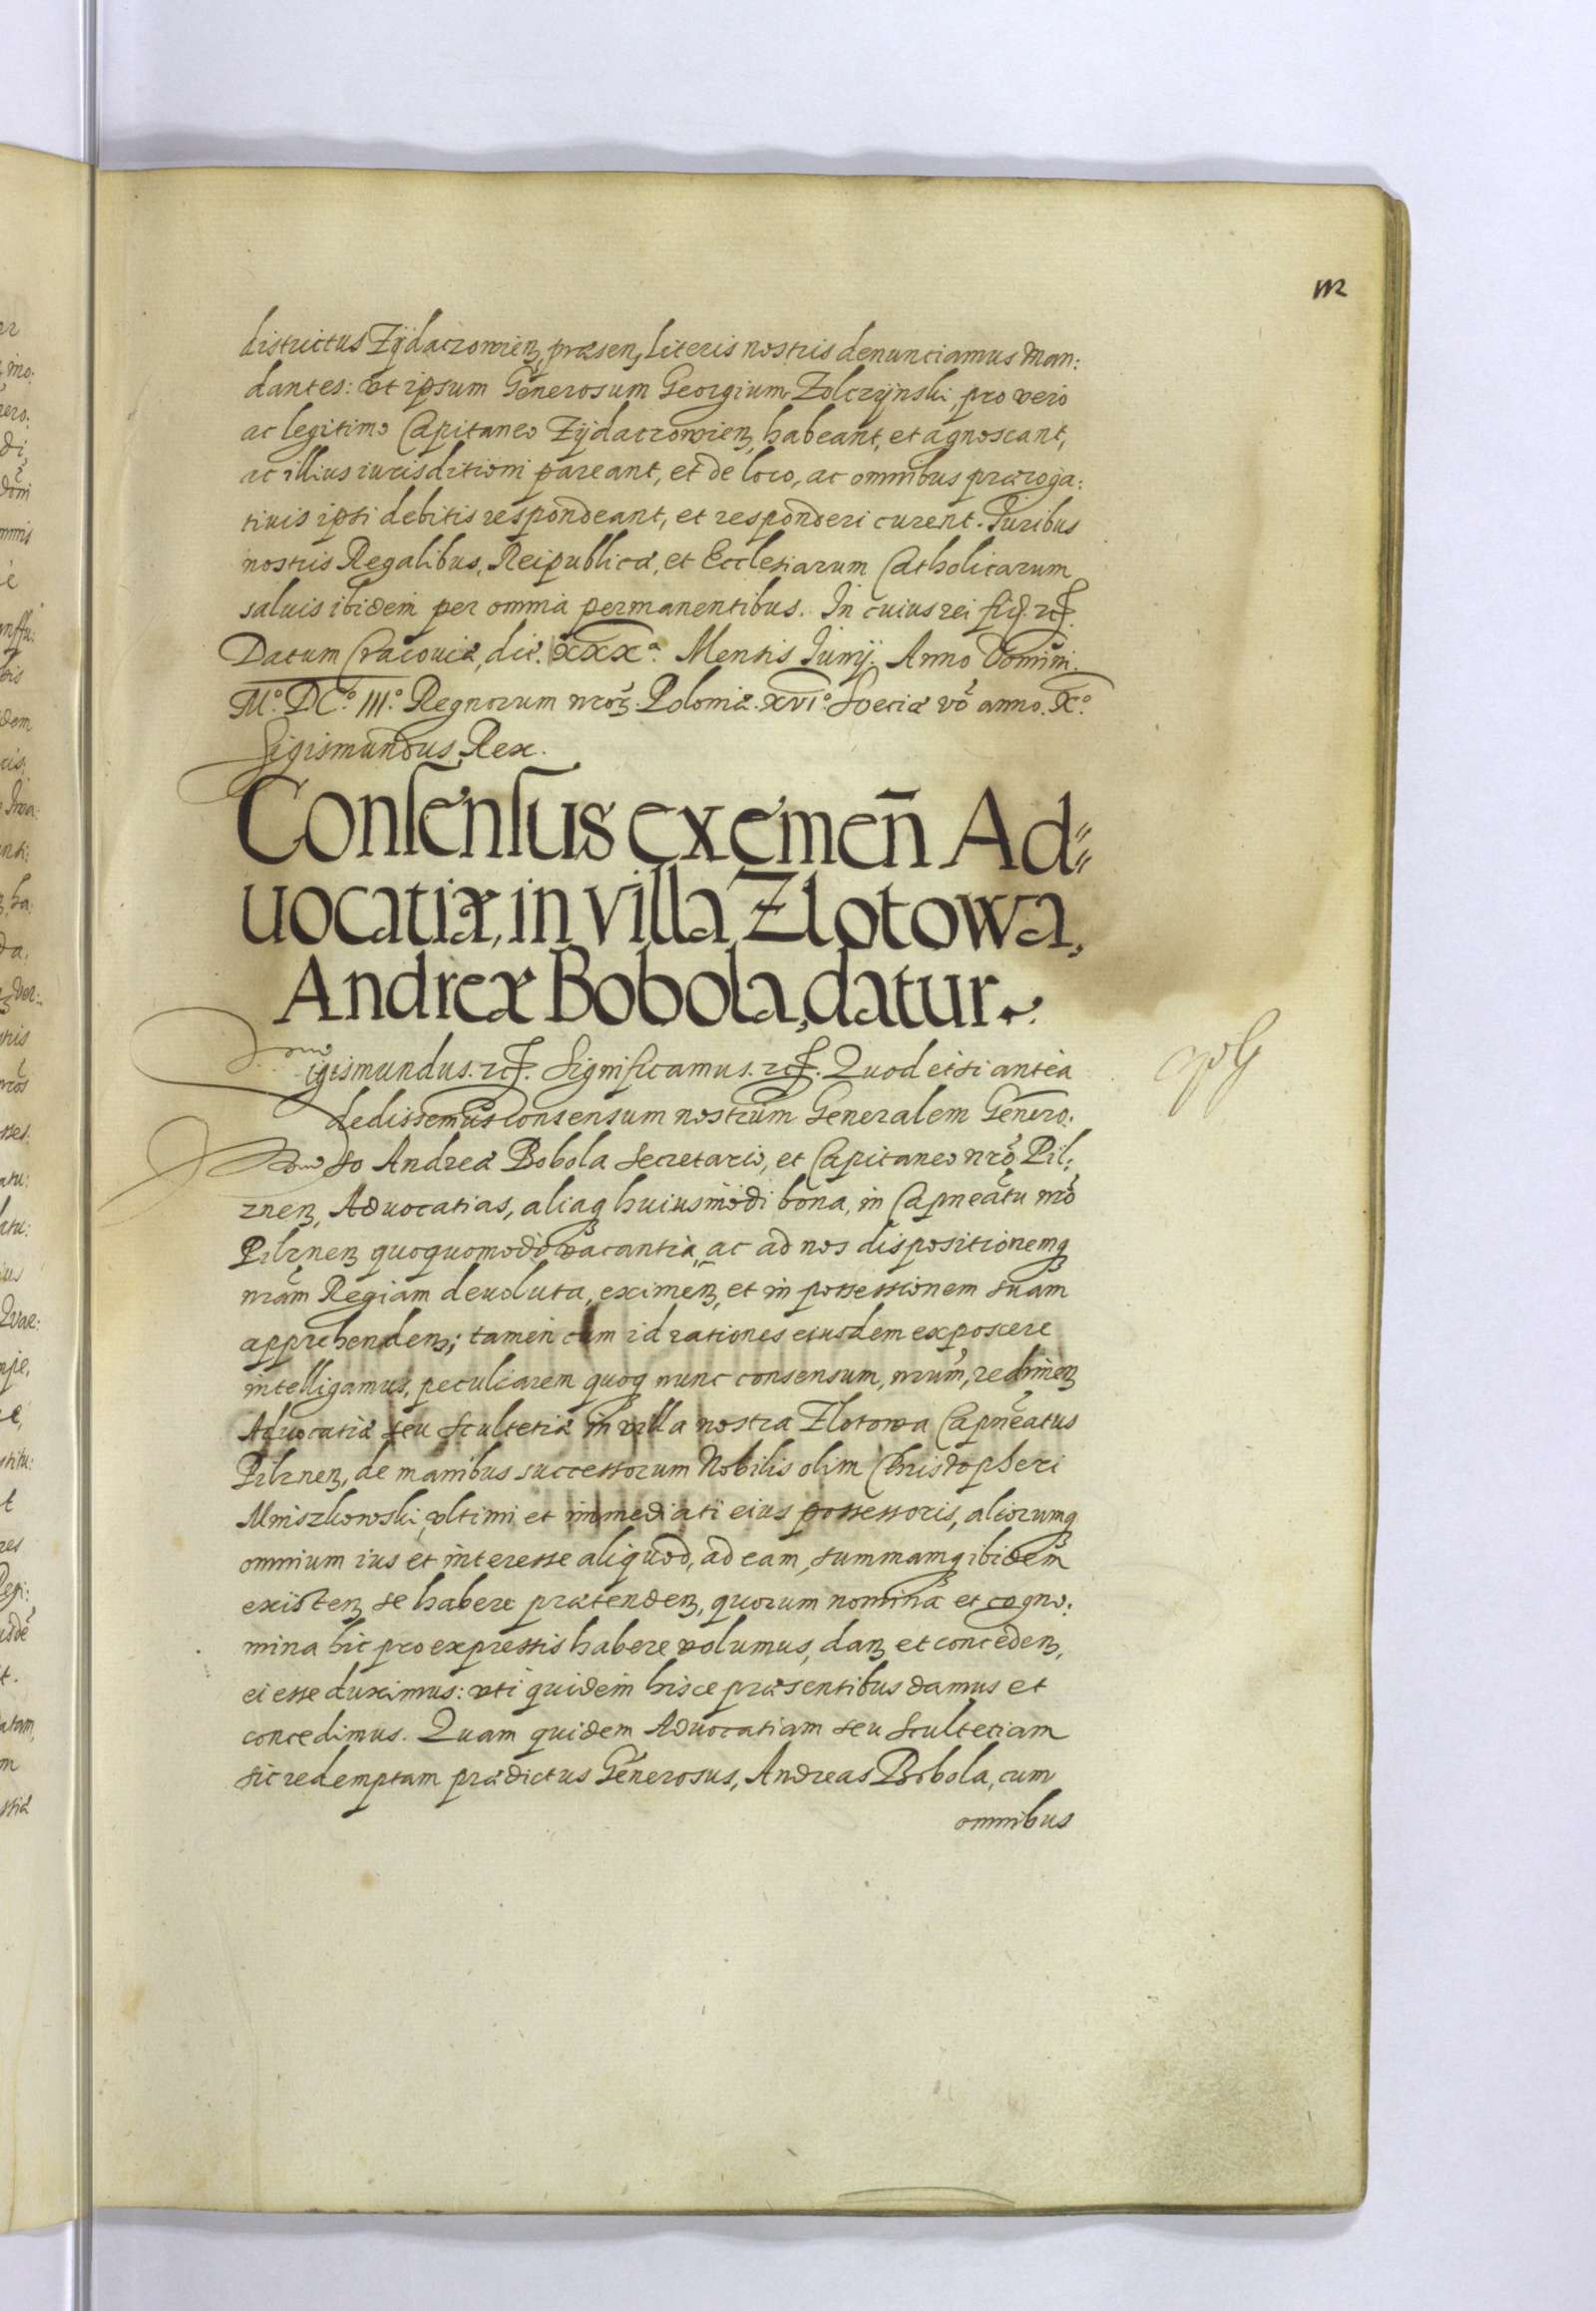 112
districtus Zÿdaczowien, præsen, literis nostris denunciamus man:
dantes: vt ipsum Generosum Georgium Zolczÿnski, pro vero
ac legitimo Capitaneo Zÿdaczowien, habeant, et agnoscant,
ac illius iurisditioni pareant, et de loco, ac omnibus præroga:
tiuis ipsi debitis respondeant, et responderi curent. Juribus
nostris Regalibus, Reipublicæ, et Ecclesiarum Catholicarum
saluis ibidem per omnia permanentibus. In cuius rei fid. etc.
Datum Cracouiæ, die. XXXª. Mensis Junij. Anno Domini.
Mº. DCº. IIIº. Regnorum nroꝝ. Poloniæ. XVIº. Sueciæ vō anno. Xº.
Sigismundus Rex.
Consensus exemen̄ Ad=
uocatiæ, in villa Zlotowa,
Andreæ Bobola, datur.
Sigismundus. etc. Significamus. etc. Quod etsi antea
dedissemus consensum nostrum Generalem Genero:
so Andreæ Bobola Secretario, et Capitaneo nrō Pil:
znen, Aduocatias, aliaq huiusmodi bona, in Capneatu nrō
Pilznen quoquomodo vacantia, ac ad nos dispositionemq
nram Regiam deuoluta, eximen, et in possessionem suam
apprehenden; tamen cum id rationes eiusdem exposcere
intelligamus, peculiarem quoq nunc consensum, nrum, redimen
Aduocatiæ seu Scultetiæ in villa nostra Zlotowa Capneatus
Pilznen, de manibus successorum Nobilis olim Christopheri
Mniszkowski, vltimi et immediati eius possessoris, aliorumq
omnium ius et interesse aliquod, ad eam, summamq ibidem
existen se habere prætenden, quorum nomina et cogno:
mina hic pro expressis habere volumus, dan et conceden,
ei esse duximus: vti quidem hisce præsentibus damus et
concedimus. Quam quidem Aduocatiam seu Scultetiam
sic redemptam prædictus Generosus, Andreas Bobola, cum
omnibus